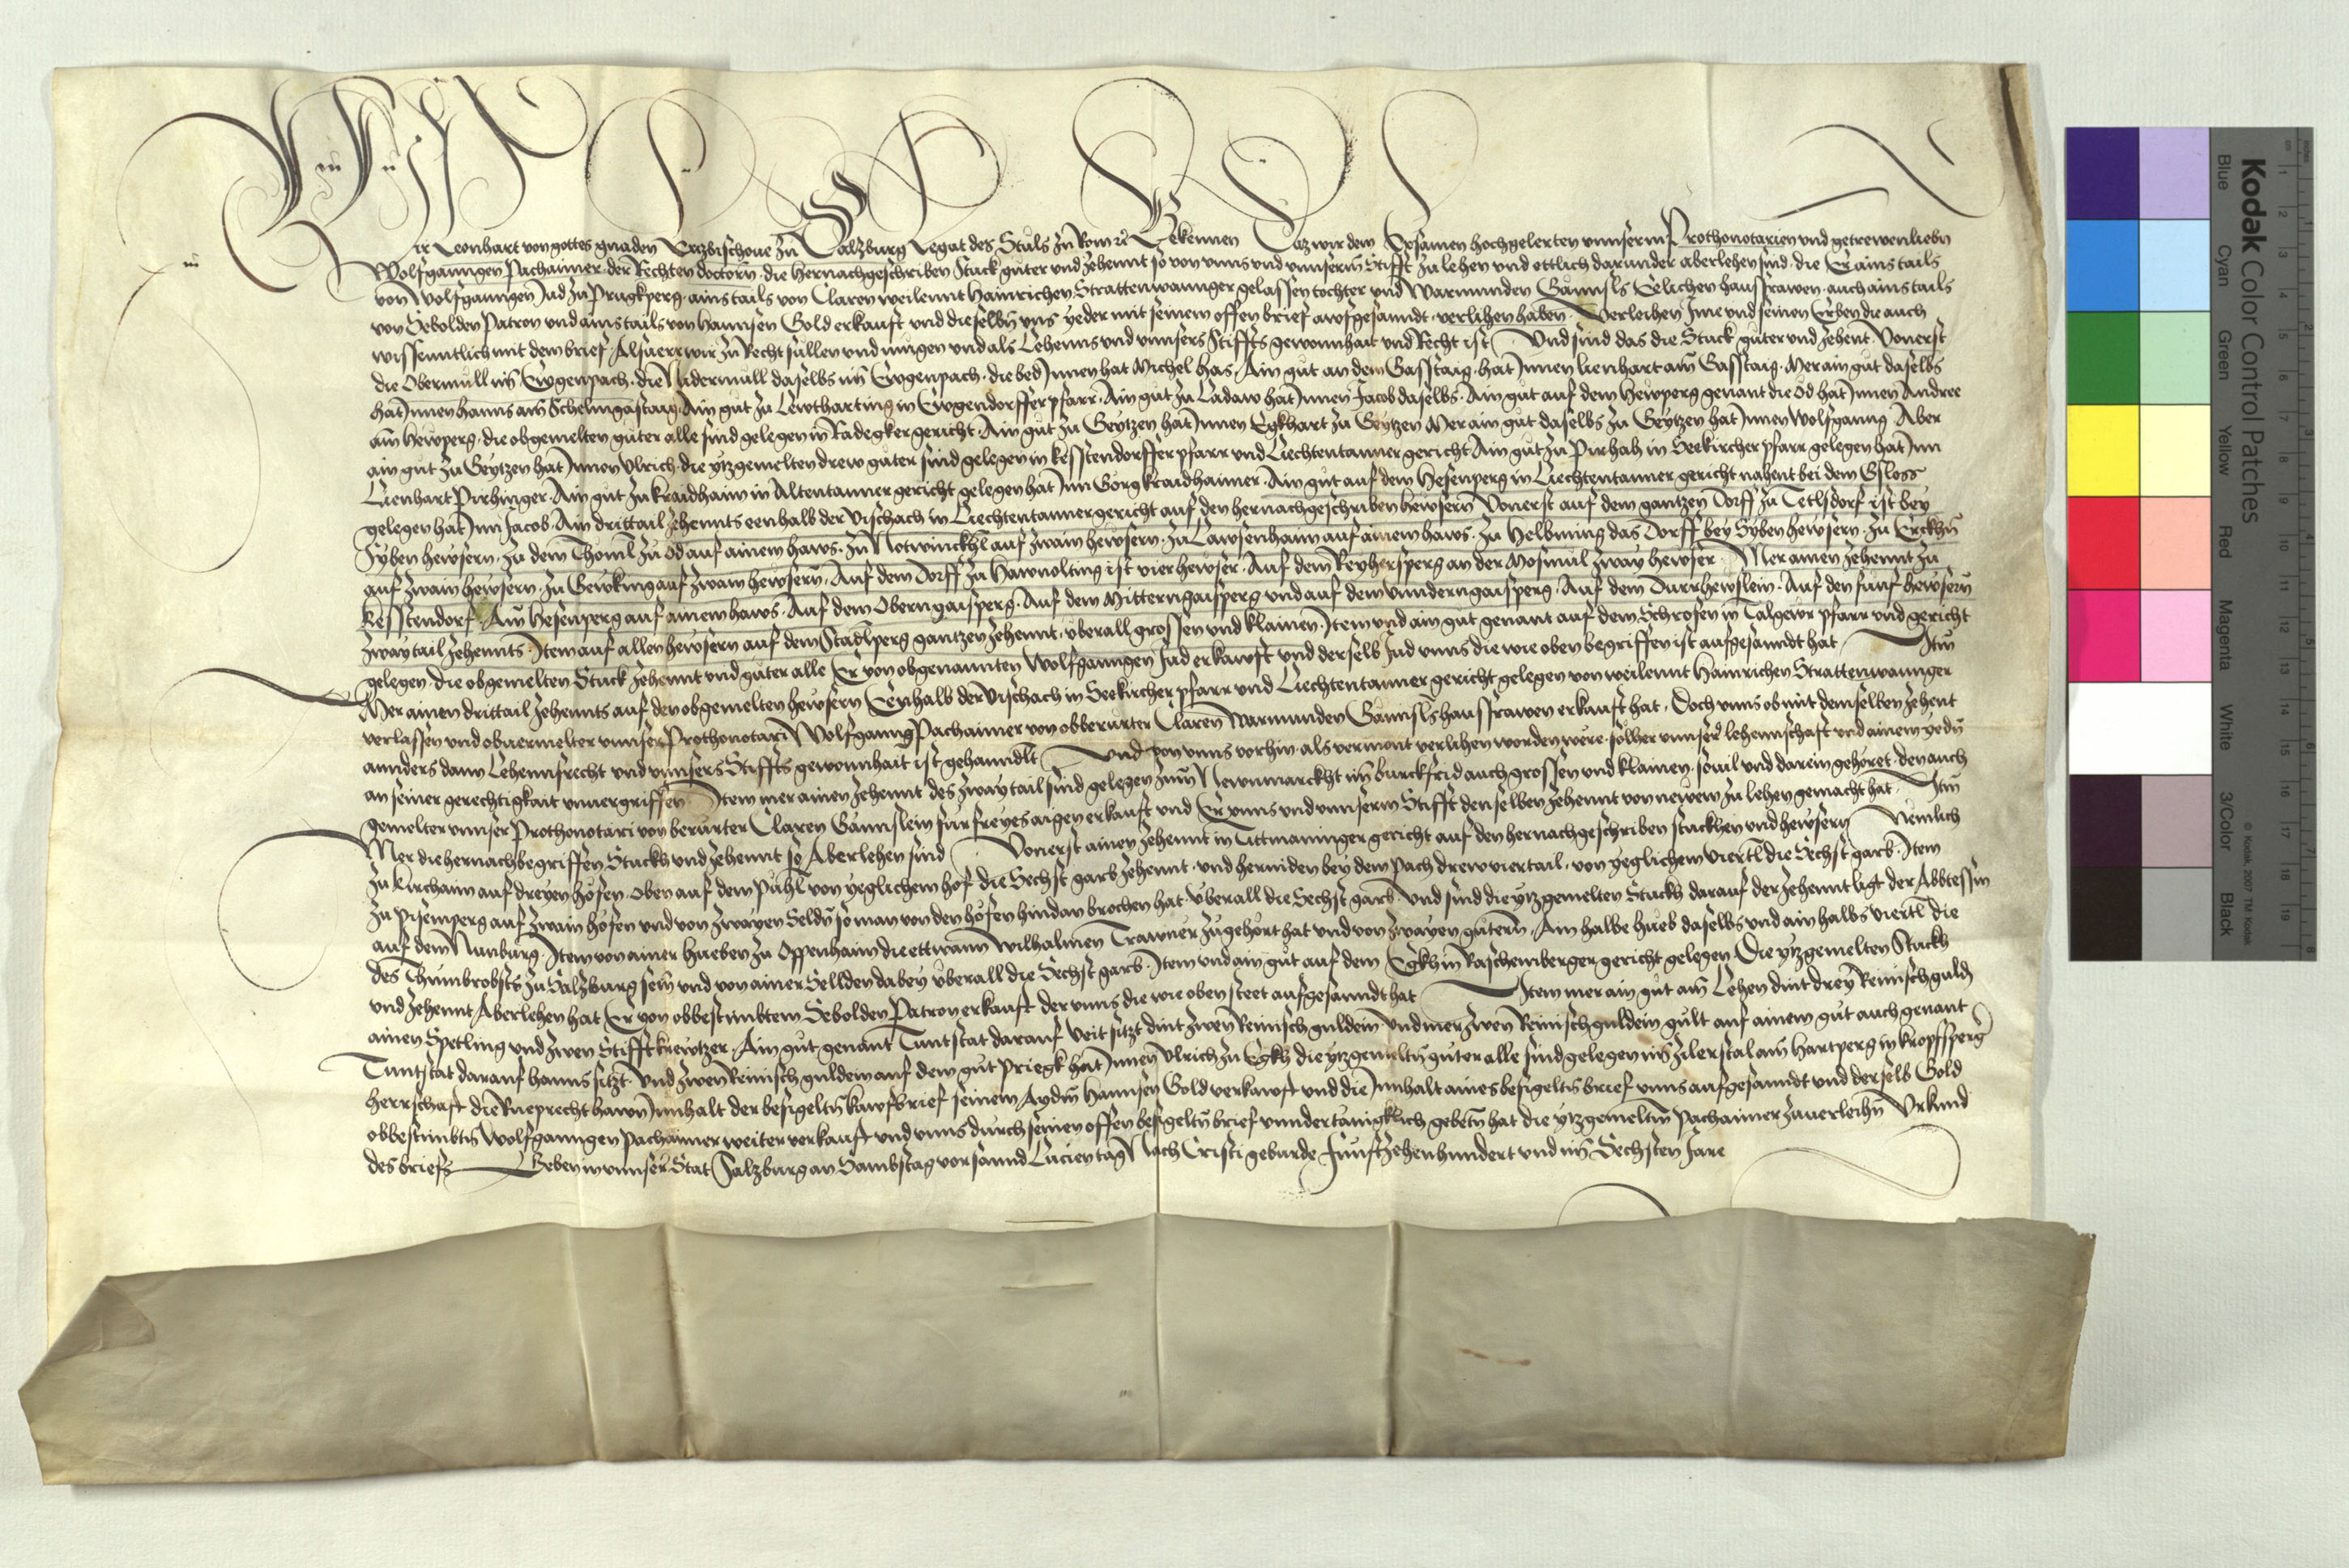 Wir Leonhart von gottes gnaden Ertzbischoue zu Saltzburg Legat des Stuls zu Rom ꝛc̃ Bekennen Daz wir dem Ersamen hochgelerten vnnserm Prothonotarien vnd getrewen liebn
Wolfganngen Pachaimer der Rechten doctorn die hernachgeschriben Stuck guter vnd zehennt so von vnns vnd vnnserm Stifft zu lehen vnd ettlich darunder aberlehen sind die Er ains tails
von Wolfganngen Jud zu Prugkperg ains tails von Claren weilennt Hainrichen Strattenwannger gelassen tochter vnd Warmunden Gännsls Eelichen haussfrawen auch ains tails
von Sebolden Patron vnd ains tails von Hannsen Gold erkauft vnd dieselbñ vns yeder mit seinem offen brief awfgesanndt verlihen haben Verleihen Jme vnd seinen Erben die auch
wissenntlich mit dem brief Alsuerr wir zu Recht sullen vnd mugen vnd als Lehenns vnd vnnsers Stiffts gewonhait vnd Recht ist Vnd sind das die Stuck guter vnd zehent Vonerst
die Obermull im Eugenpach die Nidermull daselbs im Eugenpach die bed Jnnen hat Michel Has Ain gut an dem Gassstaig hat Jnnen lienhart am Gassstaig Mer ain gut daselbs
hat Jnnen hanns am Schelmgastaig Ain gut zu Lewtharting in Eugendorffer pfarr Ain gut zu Ladaw hat Jnnen Jacob daselbs Ain gut auf dem Hewperg genant die Od hat Jnnen Andree
am hewperg die obgemelten guter alle sind gelegen in Radegker gericht Ain gut zu Geytzen hat Jnnen Egkhart zu Geytzen Mer ain gut daselbs zu Geytzen hat Jnnen Wolfganng Aber
ain gut zu Geytzen hat Jnnen Vlrich die ytzgemelten drew guter sind gelegen in kesstendorffer pfarr vnd Liechtentanner gericht Ain gut zu Pirhah in Seekircher pfarr gelegen hat Jnn
Lienhart Pirhinger Ain gut zu kraidhaim in Altentanner gericht gelegen hat Jnn Görg kraidhaimer Ain gut auf dem Hesenperg in Liechtentanner gericht nahent bei dem Gsloss
gelegen hat Jnn Jacob Ain drittail zehennts eenhalb der Vischach in Liechtentanner gericht auf den hernachgeschriben hewsern Vonerst auf dem gantzen Dorff zu Tetlsdorf ist bey
Syben hewsern zu dem Thoml zu Od auf ainem haws zu Notwinckhl auf zwain hewsern zu Lawsenhaim auf ainem haws zu Helbming das Dorff bey Syben hewsern zu
auf zwain hewsern zu Gewking auf zwain hewsern Auf dem Dorff zu Hawnolting ist vier hewser Auf dem Reyhersperg an der Mosmul zway hewser Mer ainen zehennt zu
kesstendorf Am Hesenperg auf ainem haws Auf dem Oberngaisperg Auf dem Mitterngaisperg vnd auf dem vnnderngaisperg Auf dem Durrhewslein Auf den funf hewsern
zway tail zehennts Jtem auf allen hewsern auf dem Stadlperg gantzen zehennt vberall grossen vnd klainen Jtem vnd ain gut genant auf dem Schrofen in Talgewr pfarr vnd gericht
gelegen die obgemelten Stuck zehennt vnd guter alle Er von obgenannten Wolfganngen Jud erkawft vnd derselb Jud vnns die wie oben begriffen ist aufgesanndt hat Jtm
Mer ainen drittail zehennts auf den obgemelten hewsern Eenhalb der Vischach in Seekircher pfarr vnd Liechtentanner gericht gelegen von weilennt Hainrichen Strattenwannger
verlassen vnd obuermelter vnnser Prothonotari Wolfganng Pachaimer von obberurter Claren Warmunden Gännsls haussfrawen erkauft hat Doch vnns ob mit demselben zehent
annders dann Lehennsrecht vnd vnnsers Stiffts gewonnhait ist gehanndlt Vnd von vnns vorhin als vermont verlihen worden were solher vnnser lehennschaft vnd ainem yedñ
an seiner gerechtigkait vnuergriffen Jtem mer ainen zehennt des zway tail sind gelegen zum Newnmarckht im burckfrid auch grossen vnd klainen souil vnd darein gehoret den auch
gemelter vnnser Prothonotari von berurter Claren Gännslein fur freys aigen erkauft vnd Er vnns vnd vnnserm Stifft denselben zehennt von newem zu lehen gemacht hat Jtm
Mer die hernachbegriffen Stuckh vnd zehennt so Aberlehen sind Vonerst ainen zehennt in Tittmaninger gericht auf den hernachgeschriben stuckhen vnd hewsern Nemlich
zu Kirchaim auf dreyen höfen Oben auf dem Puhl von yeglichem hof die Sechst garb zehennt vnd herniden bey dem Pach drew viertail von yeglichem viertl die Sechst garb Jtem
zu Pisemperg auf zwain höfen vnd von zwayen Seldñ so man von den höfen hindan brochen hat vberall die Sechst garb vnd sind die ytzgemelten Stuckh darauf der zehennt ligt der Abbtessin
auf dem Nunburg Jtem von ainer hueben zu Oppenhaim die ettwann Wilhalmen Trawner zugehort hat vnd von zwayen gutern Ain halbe hueb daselbs vnd ain halbs viertl die
des Thumbrobsts zu Saltzburg sein vnd von ainer Sellden dabey vberall die Sechst garb Jtem vnd ain gut auf dem Egkh in Raschemberger gericht gelegen Die ytzgemelten Stuckh
vnd zehennt Aberlehen hat Er von obbestimbtem Sebolden Patron erkauft der vnns die wie oben steet aufgesanndt hat Jtem mer ain gut am Lehen dint drey Reinisch guldñ
ainen Spetling vnd zwen Stifft krewtzer Ain gut genant Tuntstat darauf Veit sitzt dint zwen Reinisch guldein vnd mer zwen Reinisch guldein gult auf ainem gut auch genant
Tuntstat darauf hanns sitzt vnd zwen Reinisch guldein auf dem gut Priegk hat Jnnen Vlrich zu Egkh die ytzgemeltñ guter alle sind gelegen im Zilerstal am Hartperg in kropfsperg
herrschaft die Rueprecht hawn Jnnhalt der besigeltñ kaufbrief seinem Aydm Hannsen Gold verkawft vnd die Jnnhalt aines besigeltñ brief vnns aufgesanndt vnd derselb Gold
obbestimbtñ Wolfganngen Pachaimer weiter verkauft vnd vnns durch seinen offen besigeltñ brief vnndertänigklich gebetñ hat die ytzgemeltñ Pachaimer zuuerleihñ Vrkund
des briefs Geben in vnnser Stat Saltzburg an Sambstag vor sannd Lucien tag Nach Cristi geburde Funftzehenhundert vnd im Sechsten Jare
Kodak Color Control Patches
Blue Cyan Green Yellow Red Magenta White 3/Color Black
© Kodak, 2007 TM: Kodak
cm 1 2 3 4 5 6 7 8 9 10 11 12 13 14 15 16 17 18 19
inches 1 2 3 4 5 6 7 8